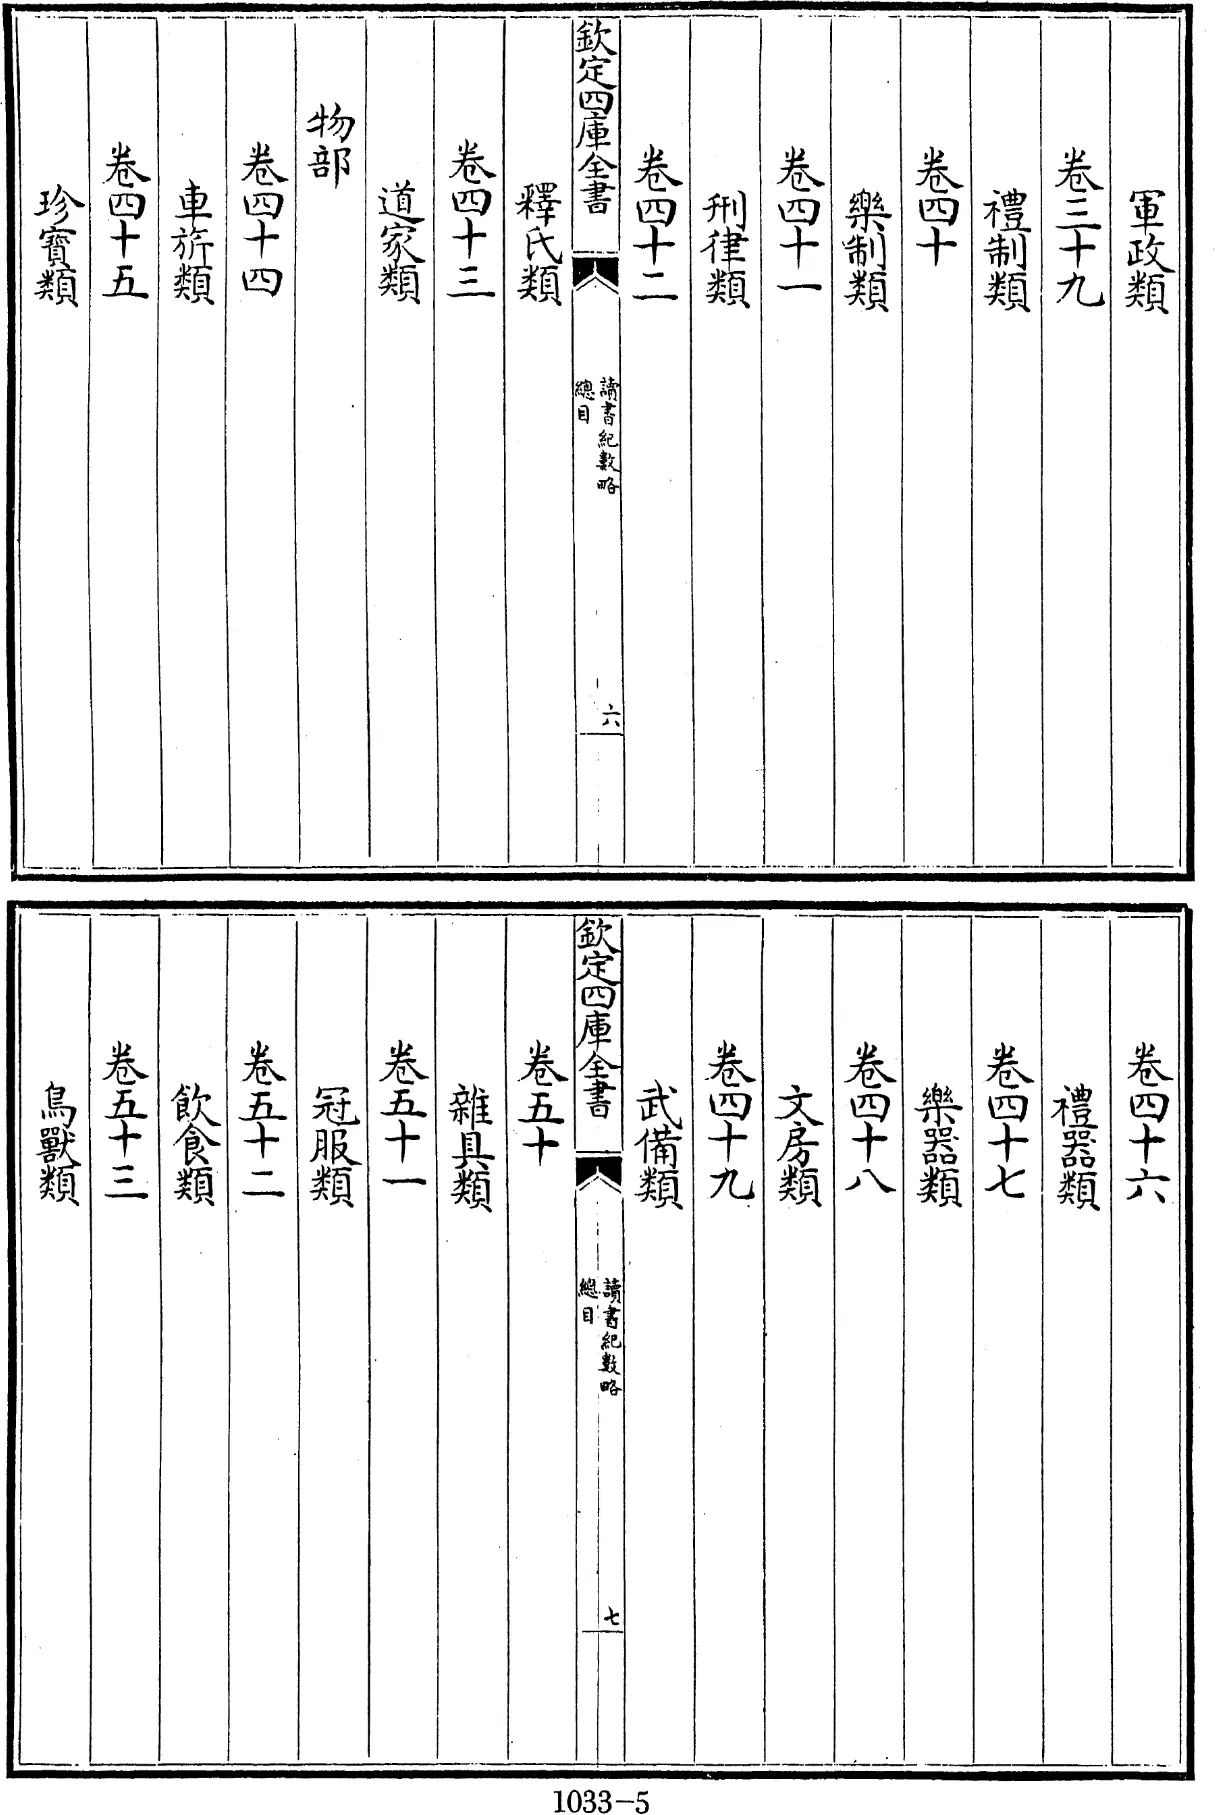 軍政類
卷三十九
禮制類
卷四十
樂制類
卷四十一
刑律類
卷四十二
欽定四庫全書
讀書紀數略
總目
六
釋氏類
卷四十三
道家類
物部
卷四十四
車旂類
卷四十五
珍寳類
卷四十六
禮器類
卷四十七
樂器類
卷四十八
文房類
卷四十九
武備類
欽定四庫全書
讀書紀數略
總目
七
卷五十
雜具類
卷五十一
冠服類
卷五十二
飲食類
卷五十三
鳥獸類
1033-5